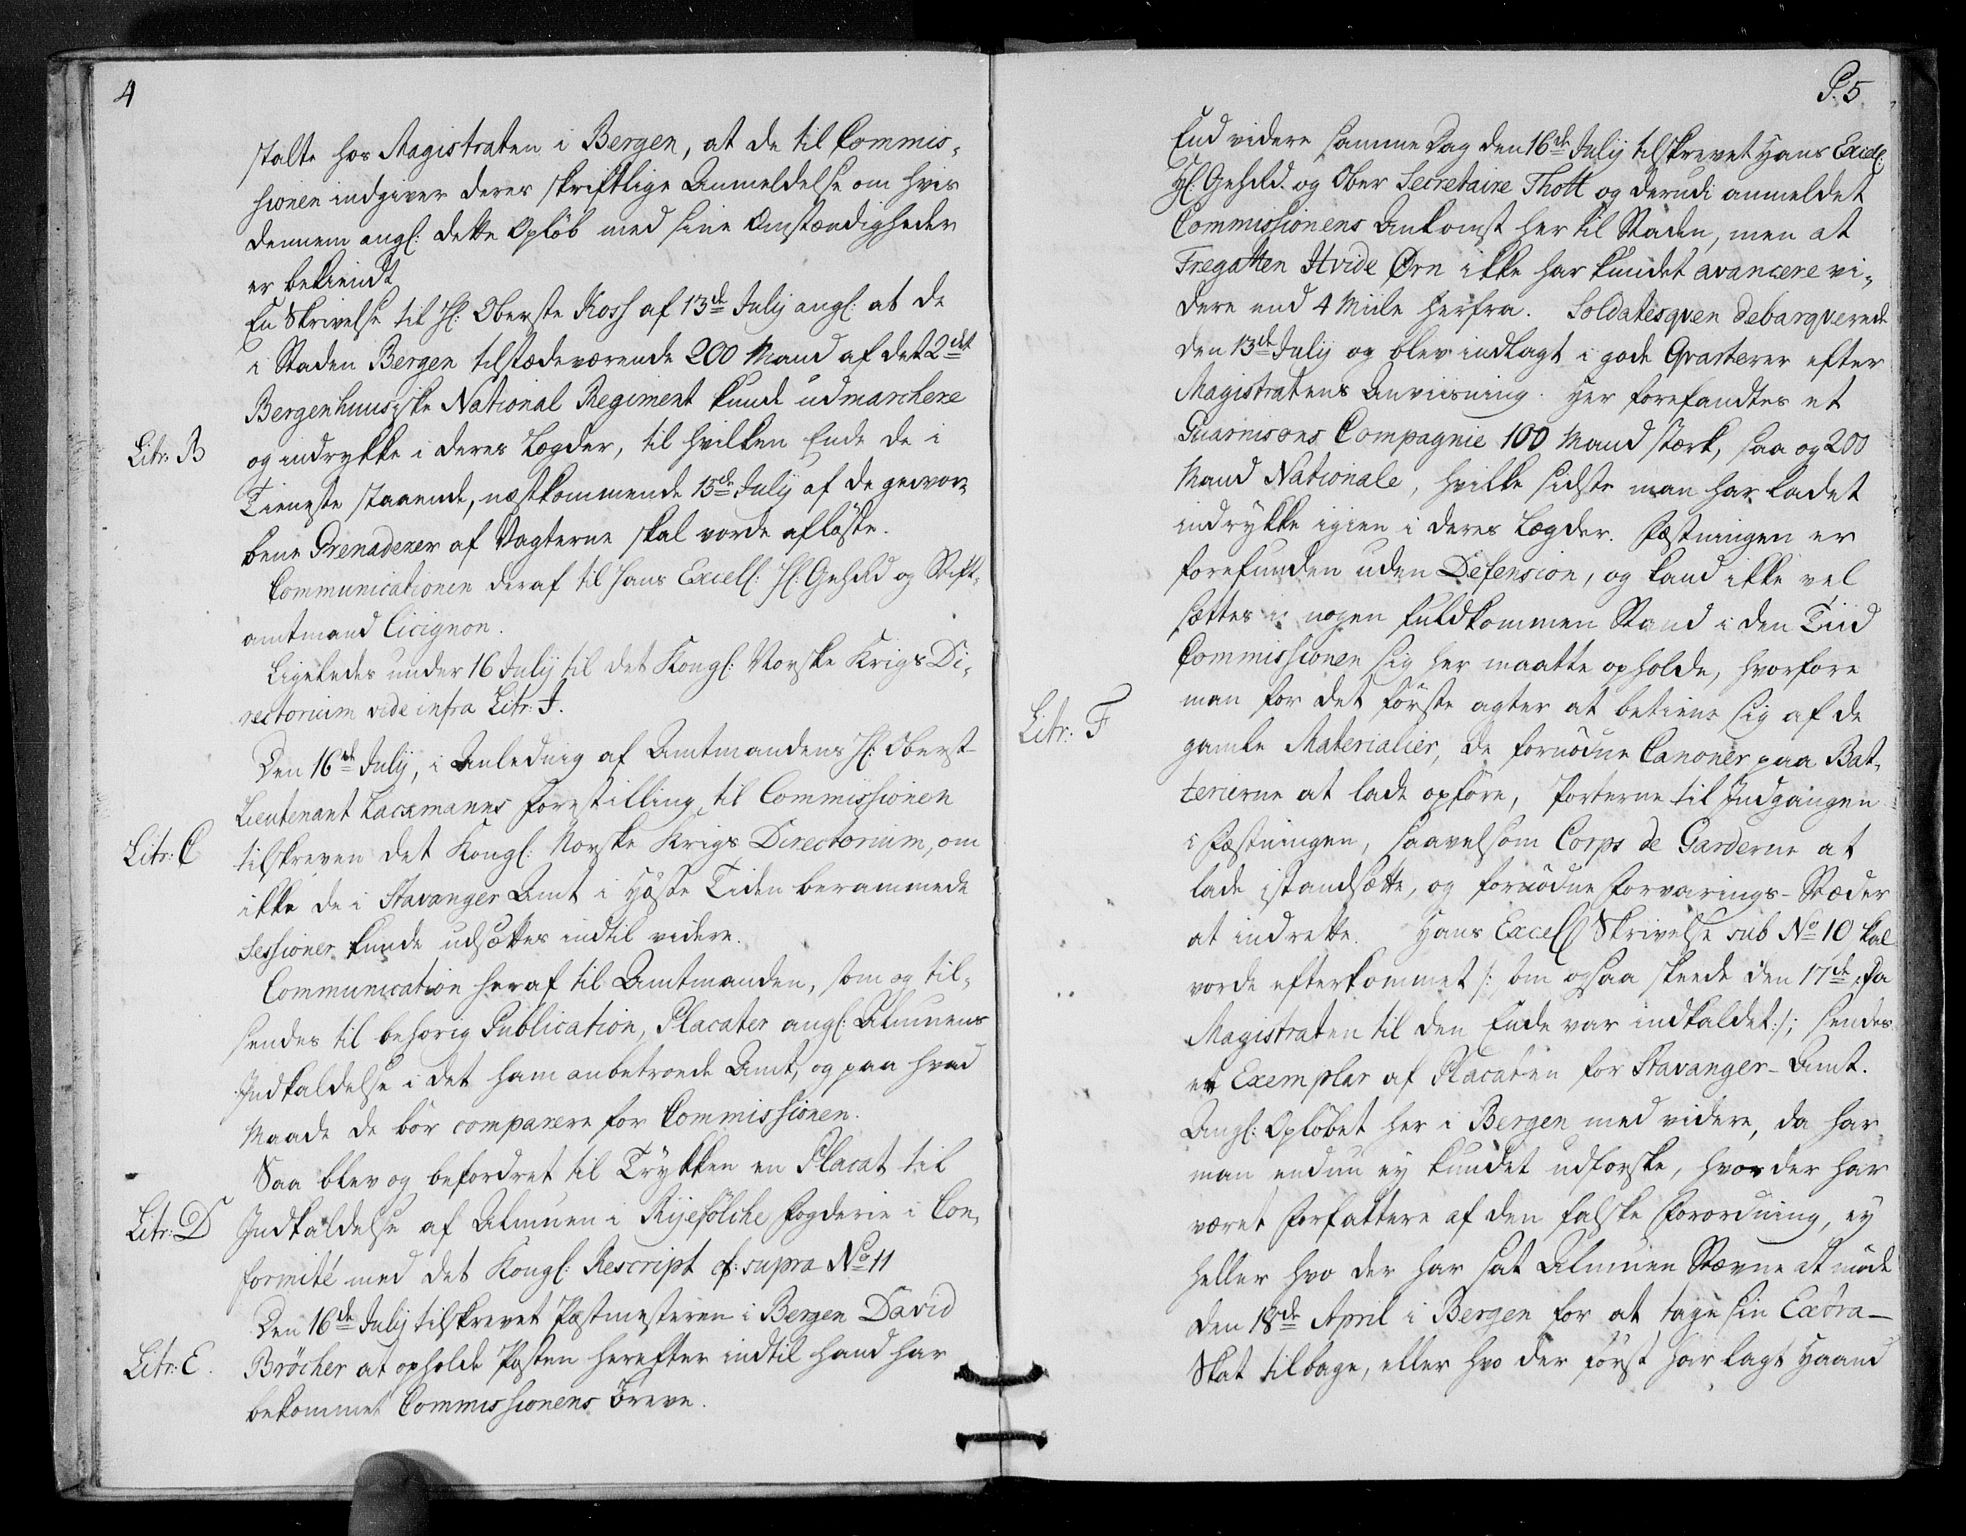 4
stalte hos Magistraten i Bergen, at de til Commis-
sionen indgiver deres skriftlige Anmeldelse om hvis
dennem angl: dette Opløb med sine Omstændigheder
er bekiendt
En Skrivelse til Hl: Oberste Koss af 13de Julij angl: at de
i Staden Bergen tilstædeværende 200 Mand af det 2det
Bergenhuusiske National Regiment kunde udmarchere
Litr: B
og indrykke i deres Lægder, til hvilken Ende de i
Tieneste staaende, næstkommende 15de Julij af de gevor-
bene Grenaderer af Vagterne skal vorde afløste.
Communicationen deraf til Hans Excell: Hl: Gehrd og Stift-
amtmand Cicignon.
Ligeledes under 16 Julij til det Kongl: Norske Krigs Di-
rectorium vide infra Litr: J.
Den 16de Julij, i Anlednig af Amtmandens Hl: Oberst-
Lieutenant Lacxmanns Forestilling, til Commissionen
Litr: C
tilskreven det Kongl: Norske Krigs Directorium, om
ikke de i Stavanger Amt i Høste Tiden berammede
Sessioner kunde udsættes indtil videre.
Communication heraf til Amtmanden, som og til-
sendes til behørig Publication, Placater angl: Almuens
Indkaldelse i det ham anbetroede Amt, og paa hvad
Maade de bør comparere for Commissionen.
Saa blev og befordret til Trykken en Placat til
Litr: D
Indkaldelse af Almuen i Ryefølche Fogderie i Con-
formité med det Kongl: Rescript cf: supra No 11
Den 16de Julij tilskrevet Postmesteren i Bergen David
Litr: E.
Bröcher at opholde Posten herefter indtil hand har
bekommet Commissionens Breve.
P. 5
End videre samme Dag den 16de Julij tilskrevet Hans Excel:
Hl: Gehrd. og Ober Secretaire Thott og derudi anmeldet
Commissionens Ankomst her til Staden, men at
Fregatten Hvide Ørn ikke har kundet avancere vi-
dere end 4 Miile herfra. Soldatesqven debarqverede
den 13de Julij og blev indlagt i gode Qvarterer efter
Magistratens Anviisning. Her forefandtes et
Guarnisons Compagnie 100 Mand stærk, saa og 200
Mand Nationale, hvilke sidste man har ladet
indrykke igien i deres Lægder. Fæstningen er
forefunden uden Defension, og kand ikke vel
sættes i nogen fuldkommen Stand i den Tiid
Commissionen sig her maatte opholde, hvorfore
man for det første agter at betiene sig af de
Litr: F
gamle Materialier, de fornødne Canoner paa Bat-
terierne at lade opføre, Porterne til Indgangen
i Fæstningen, saavelsom Corps de Garderne at
lade istandsætte, og fornødne Forvarings-Stæder
at indrette. Hans Excell Skrivelse sub No 10 skal
vorde efterkommet /: om ogsaa skeede den 17de, da
Magistraten til den Ende var indkaldet :/; sendes
et Exemplar af Placaten for Stavanger-Amt.
Angl: Opløbet her i Bergen med videre, da har
man endnu ey kundet udforske, hvor der har
været Forfattere af den falske Forordning, ey
heller hvo der har sat Almuen Stævne at møde
den 18de April i Bergen for at tage sin Extra-
Skat tilbage, eller hvo der først har lagt Haand